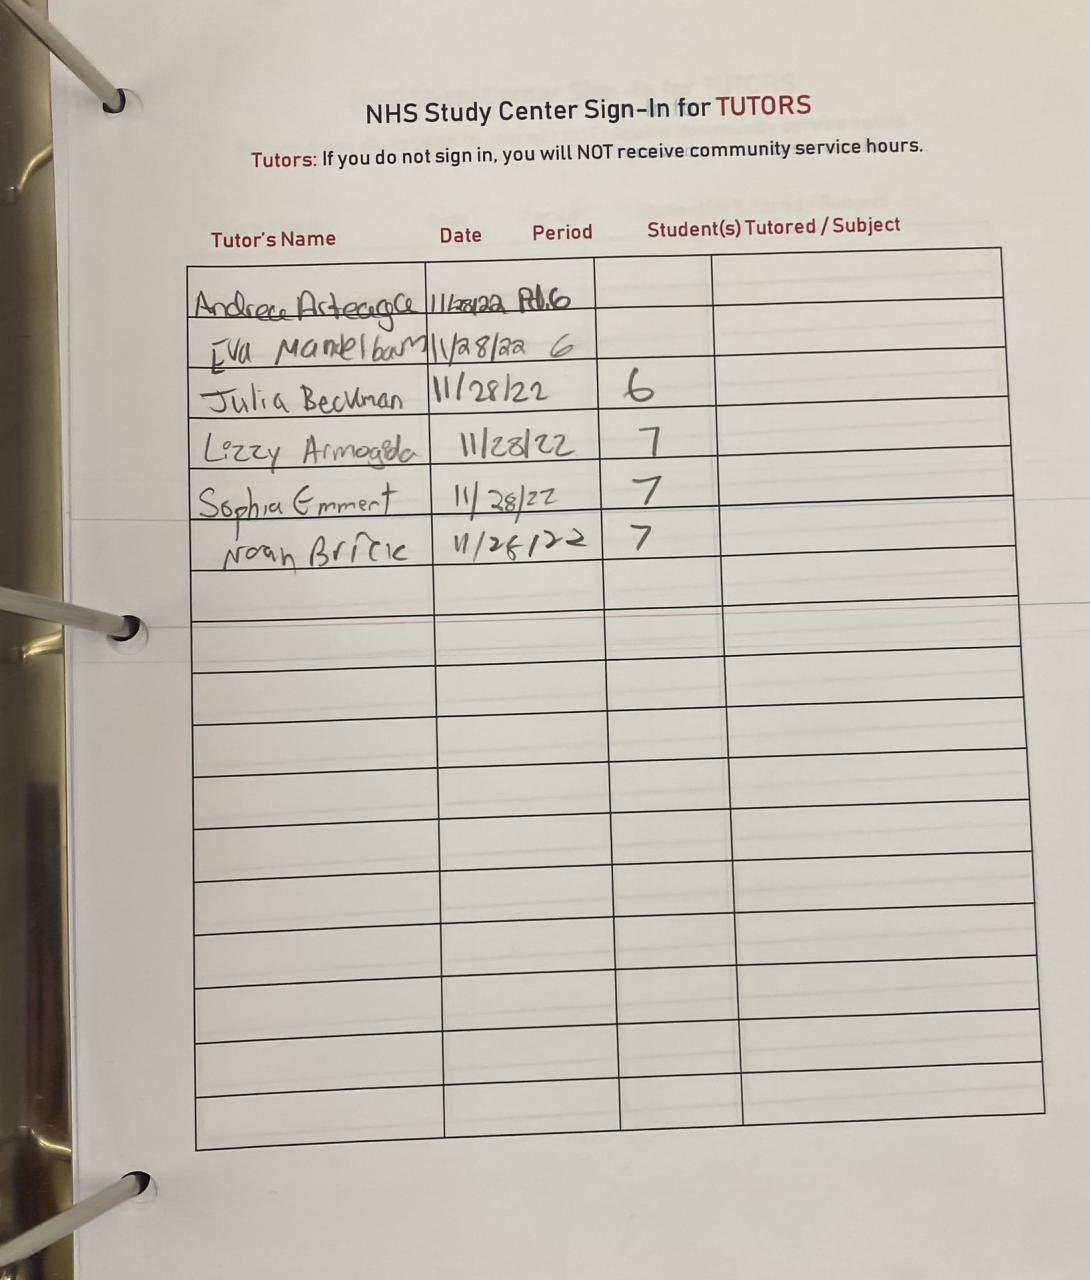 NHS Study Center Sign-In for TUTORS
Tutors: If you do not sign in, you will NOT receive community service hours.
Tutor's Name Date Period Student(s) Tutored / Subject
Andrea Arteaga 11/28/22 Pd.6
Eva Mandelbaum 11/28/22 6
Julia Beckman 11/28/22 6
Lizzy Armogida 11/28/22 7
Sophia Emmert 11/28/22 7
Noah Brick 11/28/22 7